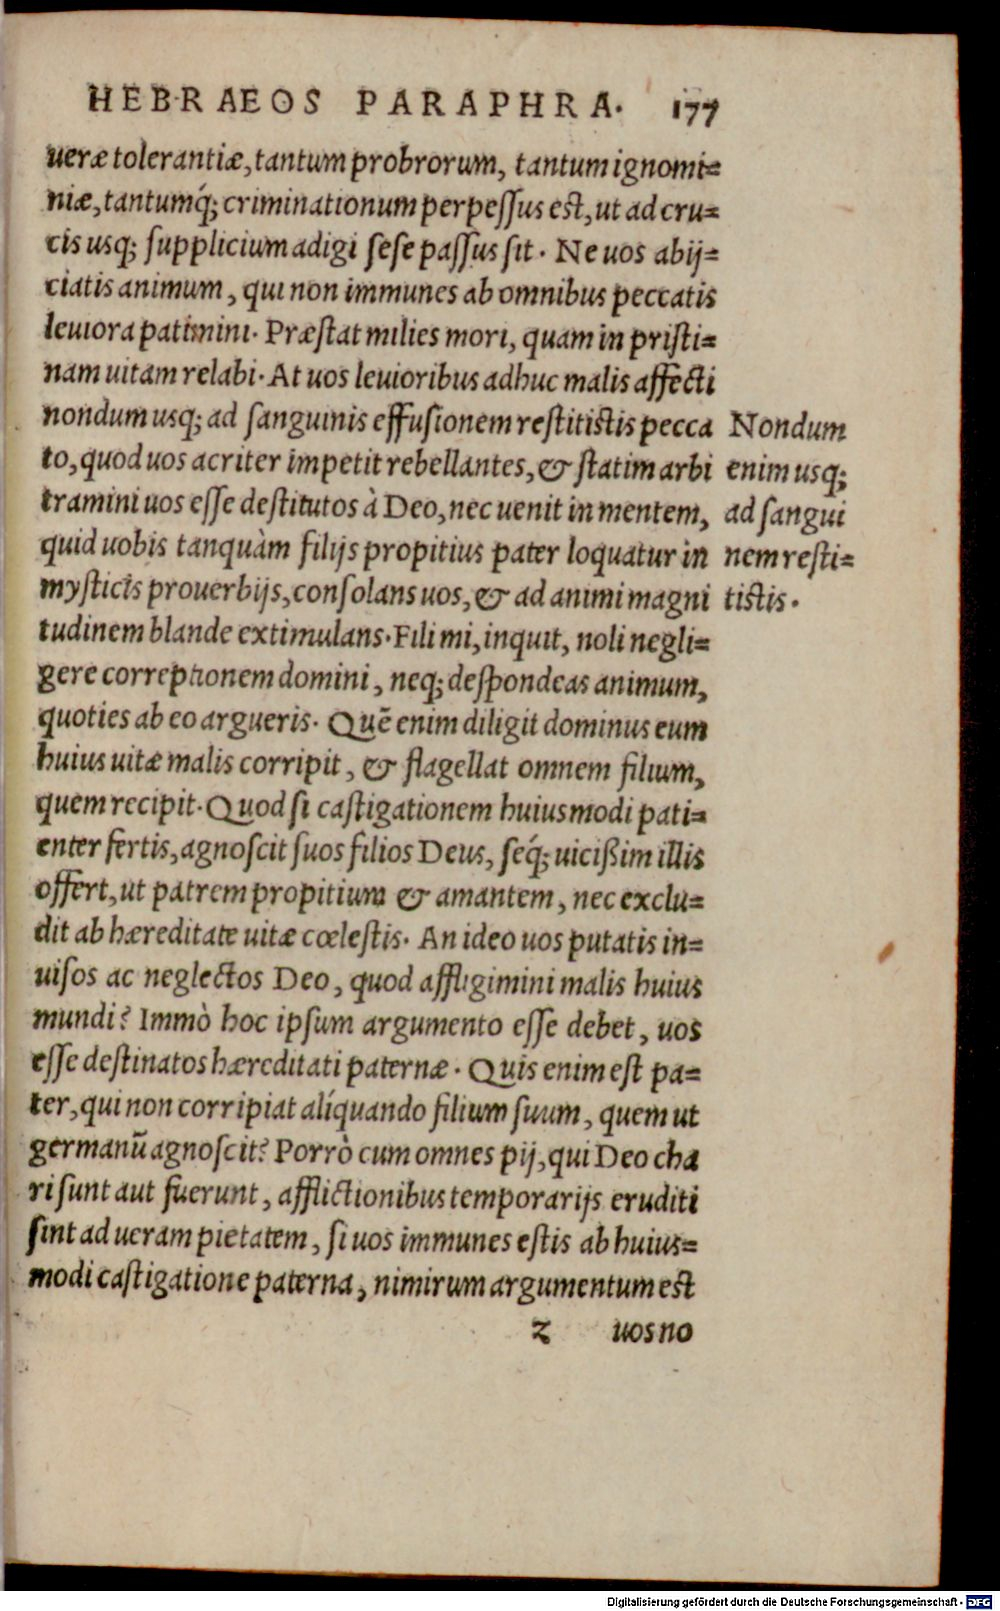 HEBRAEOS PARAPHRA. 177
ueræ tolerantiæ, tantum probrorum, tantum ignomi=
niæ, tantumq́; criminationum perpessus est, ut ad cru=
cis usq; supplicium adigi sese passus sit. Ne uos abij=
ciatis animum, qui non immunes ab omnibus peccatis
leuiora patimini. Præstat milies mori, quam in pristi=
nam uitam relabi. At uos leuioribus adhuc malis affecti
nondum usq; ad sanguinis effusionem restitistis pecca
to, quod uos acriter impetit rebellantes, & statim arbi
tramini uos esse destitutos à Deo, nec uenit in mentem,
quid uobis tanquàm filijs propitius pater loquatur in
mysticis prouerbijs, consolans uos, & ad animi magni
tudinem blande extimulans. Fili mi, inquit, noli negli=
gere correptionem domini, neq; despondeas animum,
quoties ab eo argueris. Quẽ enim diligit dominus eum
huius uitæ malis corripit, & flagellat omnem filium,
quem recipit. Quod si castigationem huiusmodi pati=
enter fertis, agnoscit suos filios Deus, seq́; uicißim illis
offert, ut patrem propitium & amantem, nec exclu=
dit ab hæreditate uitæ cœlestis. An ideo uos putatis in=
uisos ac neglectos Deo, quod affligimini malis huius
mundi? Immò hoc ipsum argumento esse debet, uos
esse destinatos hæreditati paternæ. Quis enim est pa=
ter, qui non corripiat alíquando filium suum, quem ut
germanũ agnoscit? Porrò cum omnes pij, qui Deo cha
ri sunt aut fuerunt, afflictionibus temporarijs eruditi
sint ad ueram pietatem, si uos immunes estis ab huius=
modi castigatione paterna, nimirum argumentum est
z uos no
Nondum
enim usq;
ad sangui
nem resti=
tistis.
Digitalisierung gefördert durch die Deutsche Forschungsgemeinschaft - DFG